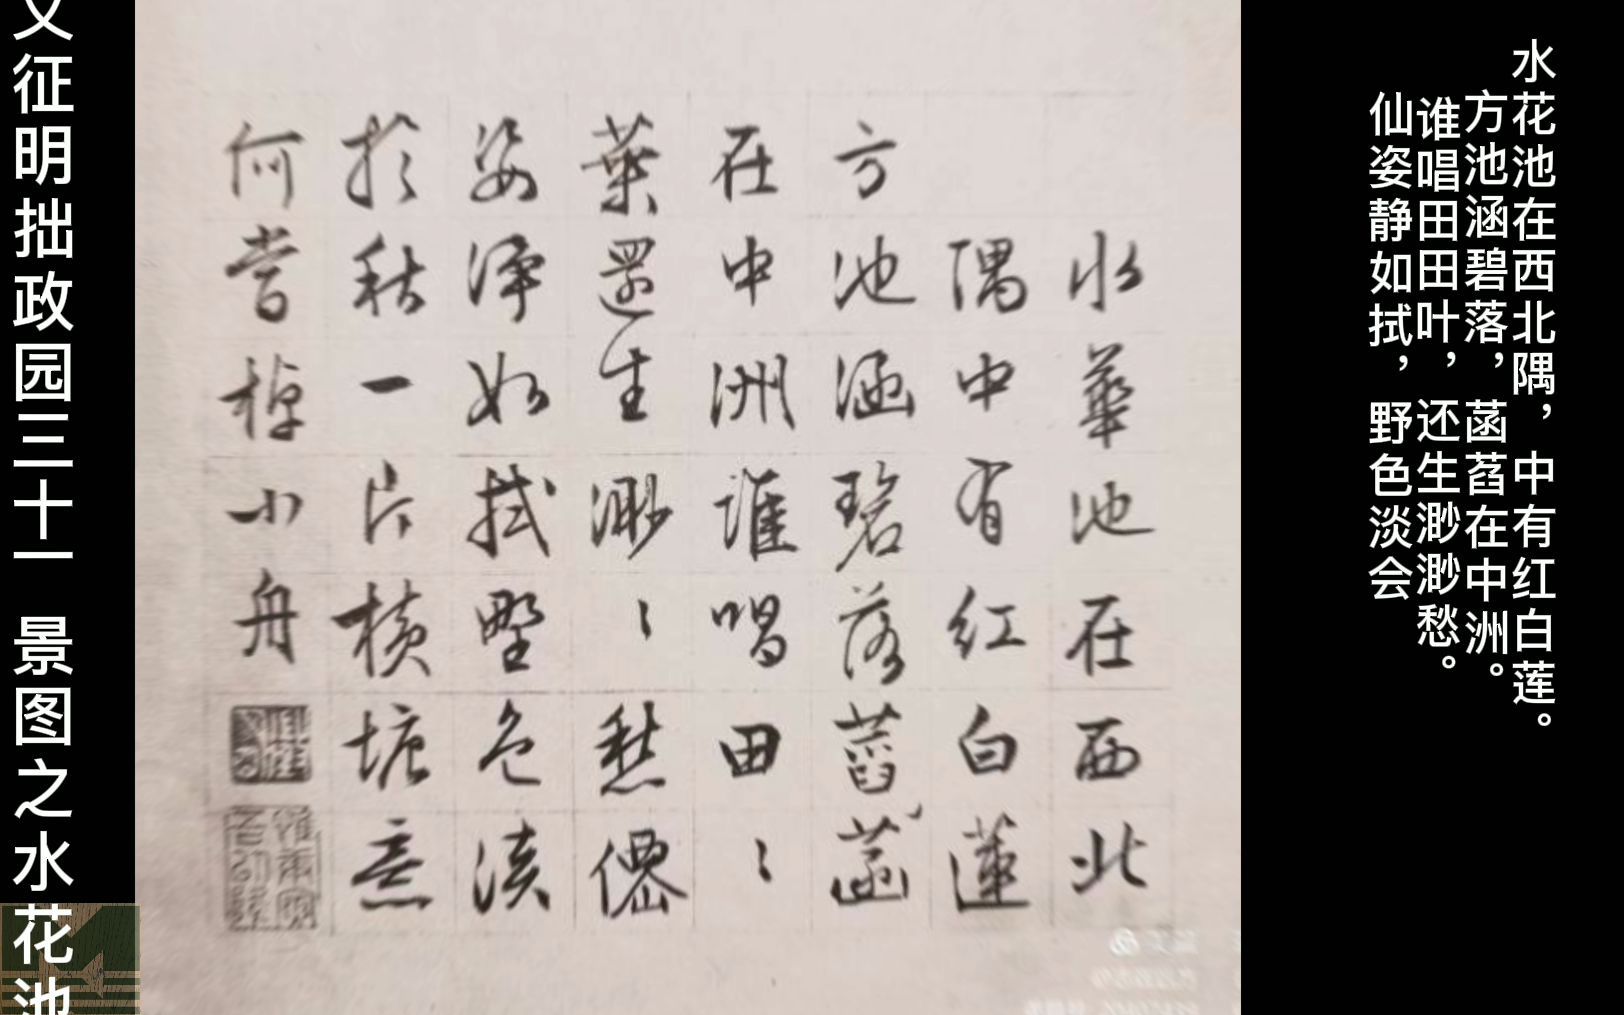 水花池在西北隅，中有红白莲。
方池涵碧落，菡萏在中洲。
谁唱田田叶，还生渺渺愁。
仙姿静如拭，野色淡会
水華池在西北
隅中有红白蓮
方池涵碧落萏菡
在中洲誰唱田〻
葉還生渺〻愁僊
姿淨如拭野色淡
於秋一片横塘意
何當棹小舟
文征明拙政园三十一 景图之水花池